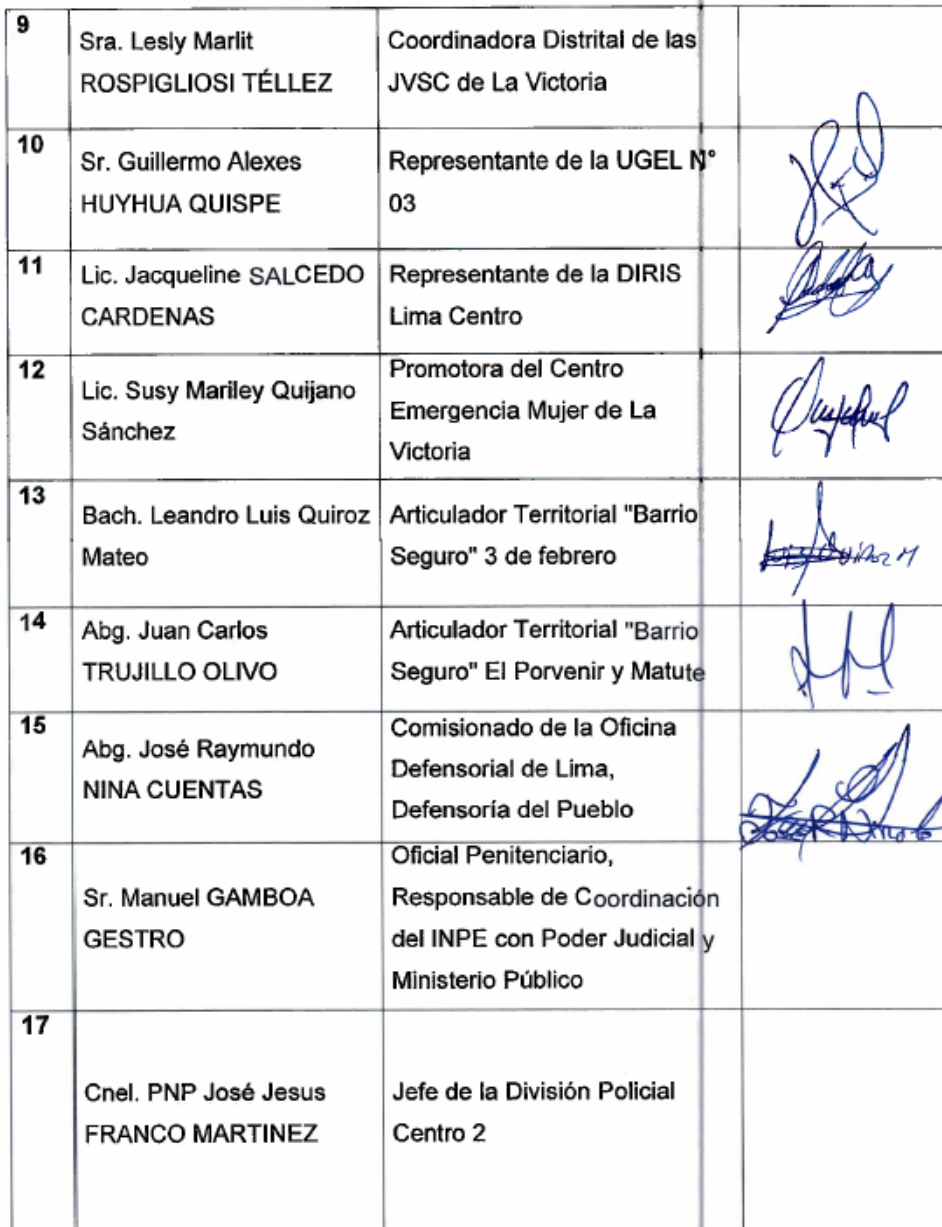 9
Sra. Lesly Marlit
ROSPIGLIOSI TÉLLEZ
Coordinadora Distrital de las
JVSC de La Victoria
10
Sr. Guillermo Alexes
HUYHUA QUISPE
Representante de la UGEL N°
03
11
Lic. Jacqueline SALCEDO
CARDENAS
Representante de la DIRIS
Lima Centro
12
Lic. Susy Mariley Quijano
Sánchez
Promotora del Centro
Emergencia Mujer de La
Victoria
13
Bach. Leandro Luis Quiroz
Mateo
Articulador Territorial "Barrio
Seguro" 3 de febrero
14
Abg. Juan Carlos
TRUJILLO OLIVO
Articulador Territorial "Barrio
Seguro" El Porvenir y Matute
15
Abg. José Raymundo
NINA CUENTAS
Comisionado de la Oficina
Defensorial de Lima,
Defensoría del Pueblo
16
Sr. Manuel GAMBOA
GESTRO
Oficial Penitenciario,
Responsable de Coordinación
del INPE con Poder Judicial y
Ministerio Público
17
Cnel. PNP José Jesus
FRANCO MARTINEZ
Jefe de la División Policial
Centro 2